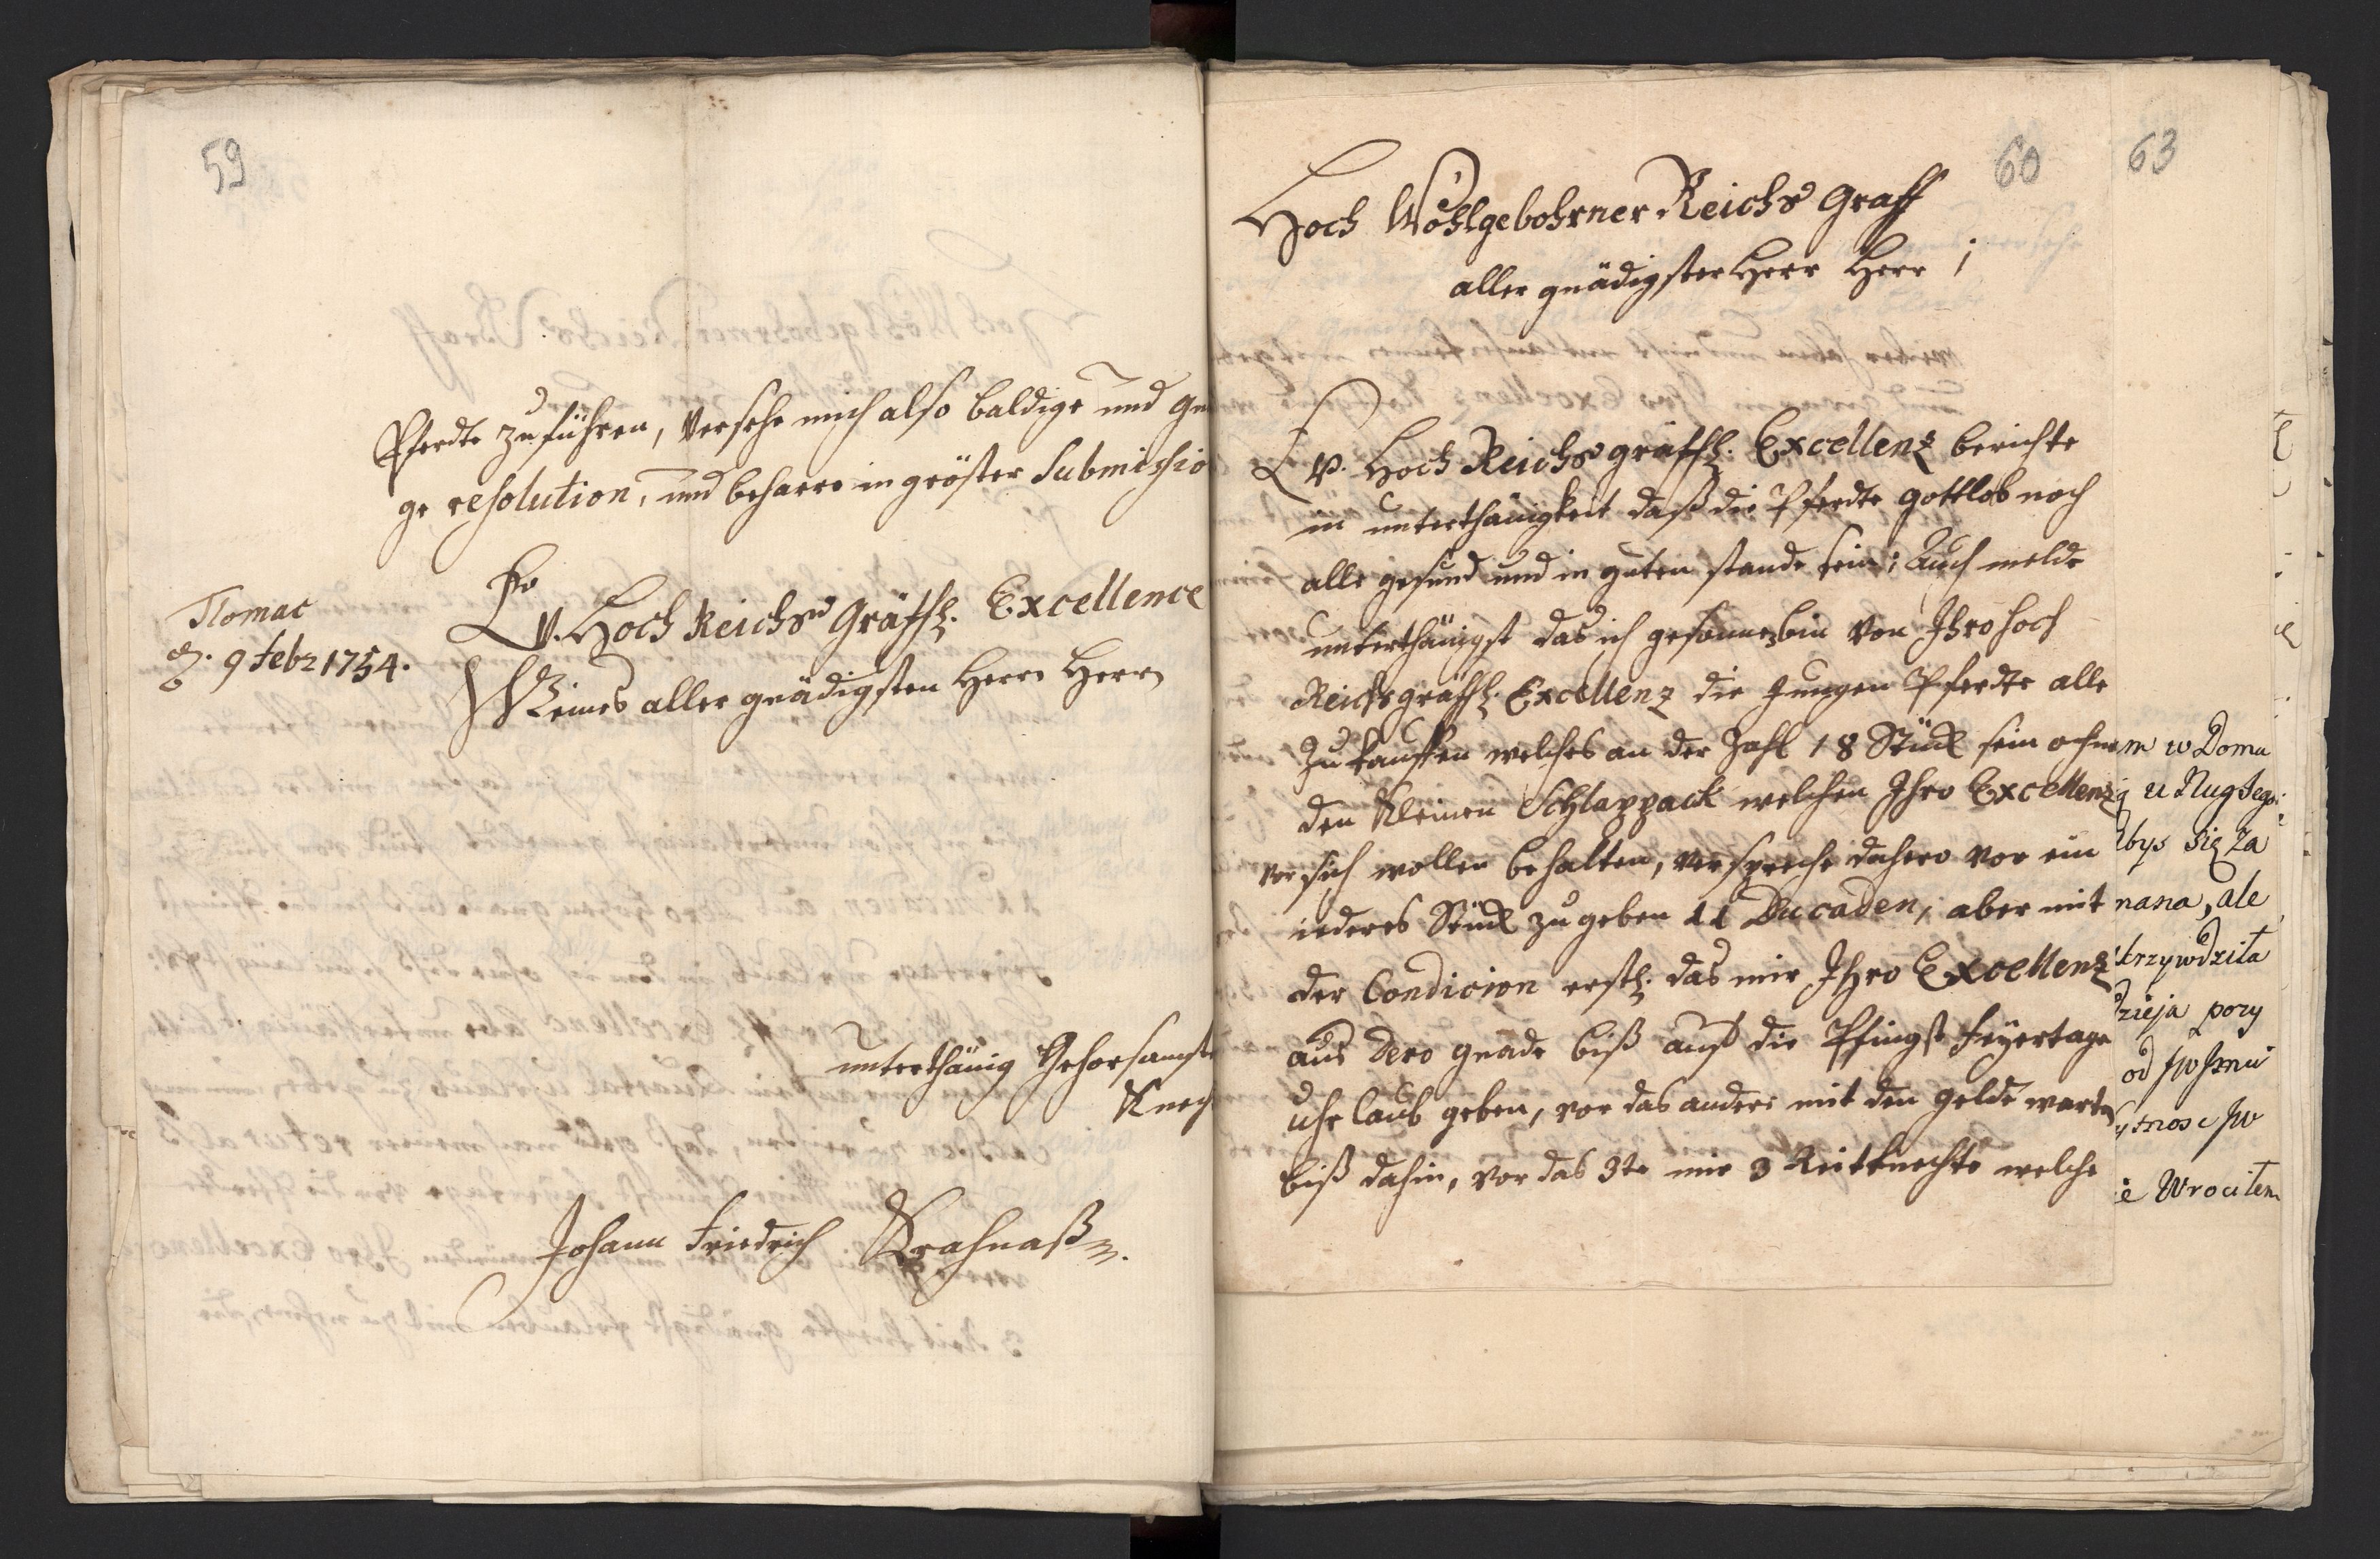 59
Pferdte zuführen, versehe mich also baldige und gn
ge resolution, und beharre in gröster Submissio
Ew. Hoch Reichs Gräffl. Excellence
Meines aller gnädigsten Herrn Herrn
Tlomac
d. 9 Febr 1754.
unterthänig Gehorsamste
Knech
Johann Friedrich
60
Hoch Wohlgebohrner Reichs Graff
aller gnädigster Herr Herr ;
Ew. Hoch Reichs gräffl. Excellenz berichte
in unterthänigkeit daß die Pferdte gottlob noch
alle gesund und in guten stande sein; Auch melde
unterthänigst das ich gesonnen bin von Ihro hoch
Reichsgräffl. Excellenz die jungen Pferdte alle
zu kauffen welches an der Zahl 18 Stück sein ohne
den Kleinen Schlappack welchen Ihro Excellenz
vor sich wollen behalten, verspreche dahero vor ein
iederes Stück zu geben 11 Ducaden, aber mit
der Condicion erstl. das mir Ihro Excellenz
aus Dero gnade biß auf die Pfingst Feyertage
uhrlaub geben, vor das andere mit den gelde warten
biß dahin, vor das 3te mir 3 Reitknechte welche
63
m w Domu
bys się za
nana, ale
krzywdziła
dzieja pory
od
e Wrociłem